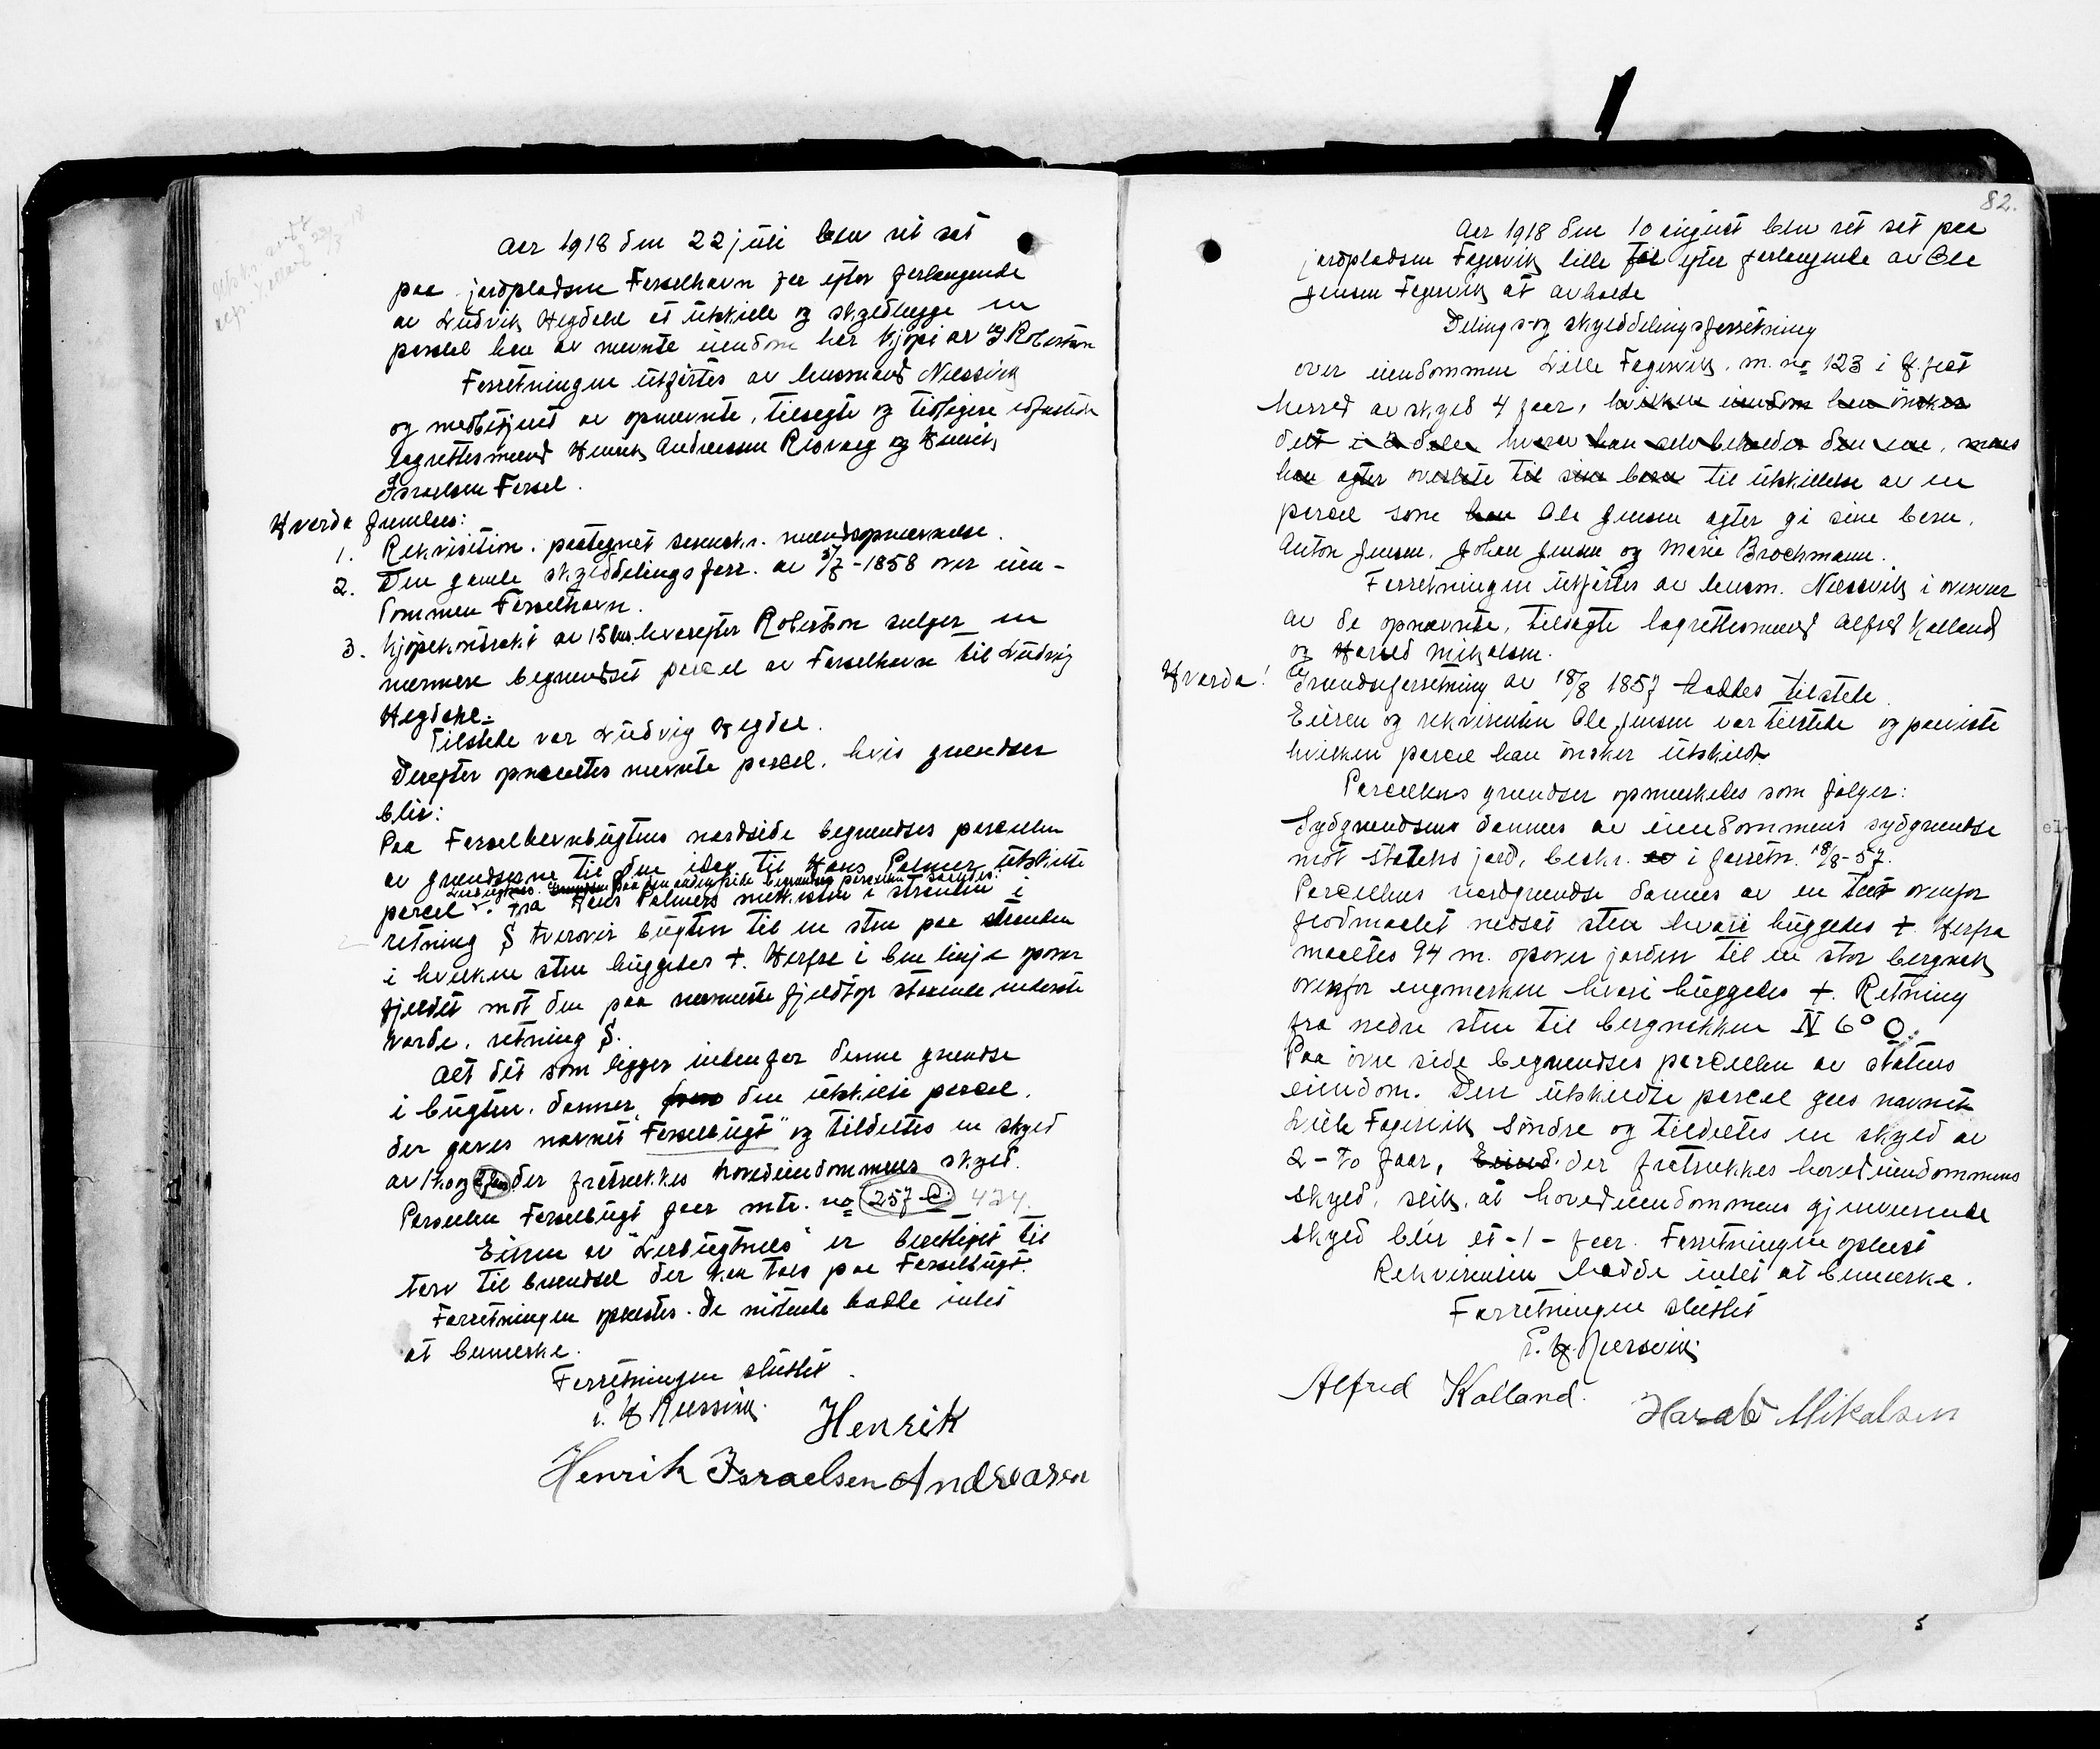 Aar 1918 den 22 juli blev ret sat
paa jordpladsen Forsølhavn for efter forlangende
av Ludvik Hegdahl at utskille og skyldlægge en
parcel han av nævnte eiendom har kjøpt av Robertson
Forretningen utførtes av lensmand Niessvik
og medbetjent av opnævnte, tilsagte og tidligere edfæstede
lagrettesmænd Henrik Andreassen Risvaag og Henrik
Israelsen Forsøl.
Hvorda fremlaaes:
1. Rekvisition. paategnet mændsopnævnelse.
2. Den gamle skylddelingsforr. av 1858 over eien-
dommen Forsølhavn.
3. Kjøpekontrakt av 15 hvorefter Robertson sælger en
nærmere begrændset parcel av Forsølhavn til Ludvig
Hegdahl.
Tilstede var Ludvig Hegdal.
Derefter opmaaltes nævnte parcel. hvis grændser
blir:
Paa Forsølhavnbugtens nordside begrændses parcellen
av grændserne til den idag til Hans Palmer utskilte
paa den anden side begrændses parcellen saaledes:
parcel Fra Hans Palmers merkesten i stranden i
retning S tverover bugten til en sten paa stranden
i hvilken sten huggedes +. Herfra i ben linje opover
fjeldet mot den paa nærmeste fjeldtop staaende nederste
varde, retning S.
Alt det som ligger indenfor denne grændse
i bugten. danner den utskilte parcel.
der gaves navnet "Forsølbugt" og tildeltes en skyld
av der fratrækkes hovedeiendommens skyld.
Parcellen Forsølbugt faar mtr. no 257 434.
Eieren av "Leirbugtnes" er berettiget til
torv til brændsel der kan taes paa Forsølbugt.
Forretningen oplæstes. De møtende hadde intet
at bemerke.
Forretningen sluttet.
Henrik
Henrik Israelsen Andreasen
82.
Aar 1918 den 10 august blev ret sat paa
jordpladsen Fagervik lille for efter forlangende av Ole
Jensen Fagervik at avholde
Delings- og skylddelingsforretning
over eiendommen Lille Fagervik. m. no 123 i H.fest
herred av skyld 4 øre, hvilken eiendom han ønsker
delt i 2 dele hvorav han selv beholder den ene, mens
han agter overlate til sine barn til utskillelse av en
parcel som han Ole Jensen agter gi sine barn,
Anton Jensen, Johan Jensen og Marie Brochmann.
Forretningen utførtes av lensm. Niessvik i overvær
av de opnævnte, tilsagte lagrettesmænd Alfred Kolland
og Harald Mikalsen.
Hvorda! Grændseforretning av 18/8 1857 haddes tilstede
Eieren og rekvirenten Ole Jensen var tilstede og paaviste
hvilken parcel han ønsker utskilt.
Parcellens grændser opmerkedes som følger:
Sydgrændsen dannes av eiendommens sydgrændse
mot statens jord, beskr. i forretn. 18/8-57.
Parcellens nordgrændse dannes av en tæt ovenfor
flodmaalet nedsat sten hvori huggedes + Herfra
maaltes 94 m. opover jorden til en stor bergnak
ovenfor engmarken hvori huggedes +. Retning
fra nedre sten til bergnakken N 6° O.
Paa øvre side begrændses parcellen av statens
eiendom. Den utskilte parcel gaves navnet
Lille Fagervik Søndre og tildeltes en skyld av
2 - to øre, der fratrækkes hovedeiendommens
skyld, slik, at hovedeiendommens gjenværende
skyld blir et - 1 - øre. Forretningen oplæst
Rekvirenten hadde intet at bemerke.
Forretningen sluttet
Alfred Kolland.
Harald Mikalsen